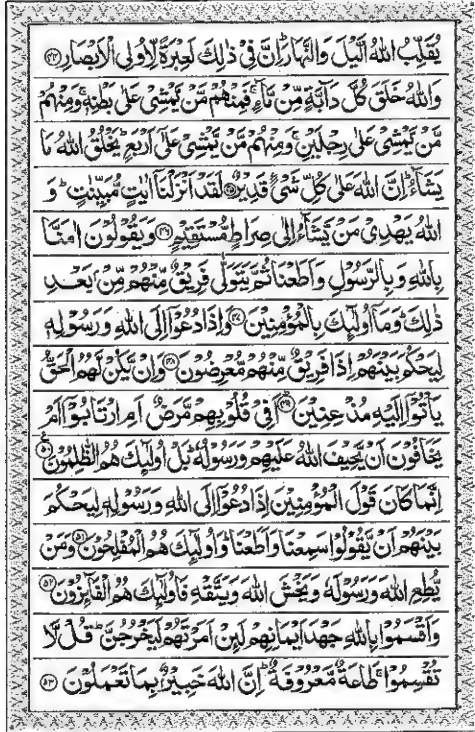 يُقَلِّبُ اللهُ الَّيْلَ وَالنَّهَارَؕ اِنَّ فِيْ ذٰلِكَ لَعِبْرَةً لِّاُولِي الْاَبْصَارِ ﴿۴۴﴾
وَاللهُ خَلَقَ كُلَّ دَآبَّةٍ مِّنْ مَّآءٍۚ فَمِنْهُمْ مَّنْ يَّمْشِيْ عَلٰى بَطْنِهٖۚ وَمِنْهُمْ
مَّنْ يَّمْشِيْ عَلٰى رِجْلَيْنِۚ وَمِنْهُمْ مَّنْ يَّمْشِيْ عَلٰٓى اَرْبَعٍؕ يَخْلُقُ اللهُ مَا
يَشَآءُؕ اِنَّ اللهَ عَلٰى كُلِّ شَيْءٍ قَدِيْرٌ ﴿۴۵﴾ لَقَدْ اَنْزَلْنَآ اٰيٰتٍ مُّبَيِّنٰتٍؕ وَ
اللهُ يَهْدِيْ مَنْ يَّشَآءُ اِلٰى صِرَاطٍ مُّسْتَقِيْمٍ ﴿۴۶﴾ وَيَقُوْلُوْنَ اٰمَنَّا
بِاللهِ وَبِالرَّسُوْلِ وَاَطَعْنَا ثُمَّ يَتَوَلّٰى فَرِيْقٌ مِّنْهُمْ مِّنْۢ بَعْدِ
ذٰلِكَؕ وَمَآ اُولٰٓئِكَ بِالْمُؤْمِنِيْنَ ﴿۴۷﴾ وَاِذَا دُعُوْٓا اِلَى اللهِ وَرَسُوْلِهٖ
لِيَحْكُمَ بَيْنَهُمْ اِذَا فَرِيْقٌ مِّنْهُمْ مُّعْرِضُوْنَ ﴿۴۸﴾ وَاِنْ يَّكُنْ لَّهُمُ الْحَقُّ
يَاْتُوْٓا اِلَيْهِ مُذْعِنِيْنَ ﴿۴۹﴾ اَفِيْ قُلُوْبِهِمْ مَّرَضٌ اَمِ ارْتَابُوْٓا اَمْ
يَخَافُوْنَ اَنْ يَّحِيْفَ اللهُ عَلَيْهِمْ وَرَسُوْلُهٗؕ بَلْ اُولٰٓئِكَ هُمُ الظّٰلِمُوْنَ ﴿۵۰﴾ ع
اِنَّمَا كَانَ قَوْلَ الْمُؤْمِنِيْنَ اِذَا دُعُوْٓا اِلَى اللهِ وَرَسُوْلِهٖ لِيَحْكُمَ
بَيْنَهُمْ اَنْ يَّقُوْلُوْا سَمِعْنَا وَاَطَعْنَاؕ وَاُولٰٓئِكَ هُمُ الْمُفْلِحُوْنَ ﴿۵۱﴾ وَمَنْ
يُّطِعِ اللهَ وَرَسُوْلَهٗ وَيَخْشَ اللهَ وَيَتَّقْهِ فَاُولٰٓئِكَ هُمُ الْفَآئِزُوْنَ ﴿۵۲﴾
وَاَقْسَمُوْا بِاللهِ جَهْدَ اَيْمَانِهِمْ لَئِنْ اَمَرْتَهُمْ لَيَخْرُجُنَّؕ قُلْ لَّا
تُقْسِمُوْاۚ طَاعَةٌ مَّعْرُوْفَةٌؕ اِنَّ اللهَ خَبِيْرٌۢ بِمَا تَعْمَلُوْنَ ﴿۵۳﴾